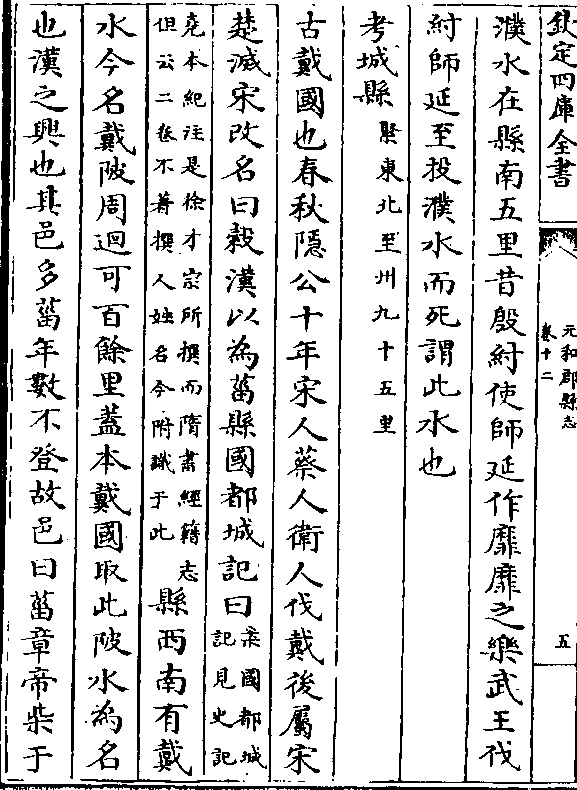 欽定四庫全書
元和郡縣志
卷十二
五
濮水在縣南五里昔殷紂使師延作靡靡之樂武王伐
紂師延至投濮水而死謂此水也
考城縣 緊東北至州九十五里
古戴國也春秋隱公十年宋人蔡人衛人伐戴後屬宋
楚滅宋改名曰穀漢以為菑縣國都城記曰 案國都城
記見史記
堯本紀注是徐才宗所撰而隋書經籍志
但云二卷不著撰人姓名今附識于此 縣西南有戴
水今名戴陂周迴可百餘里蓋本戴國取此陂水為名
也漢之興也其邑多菑年數不登故邑曰菑章帝柴于